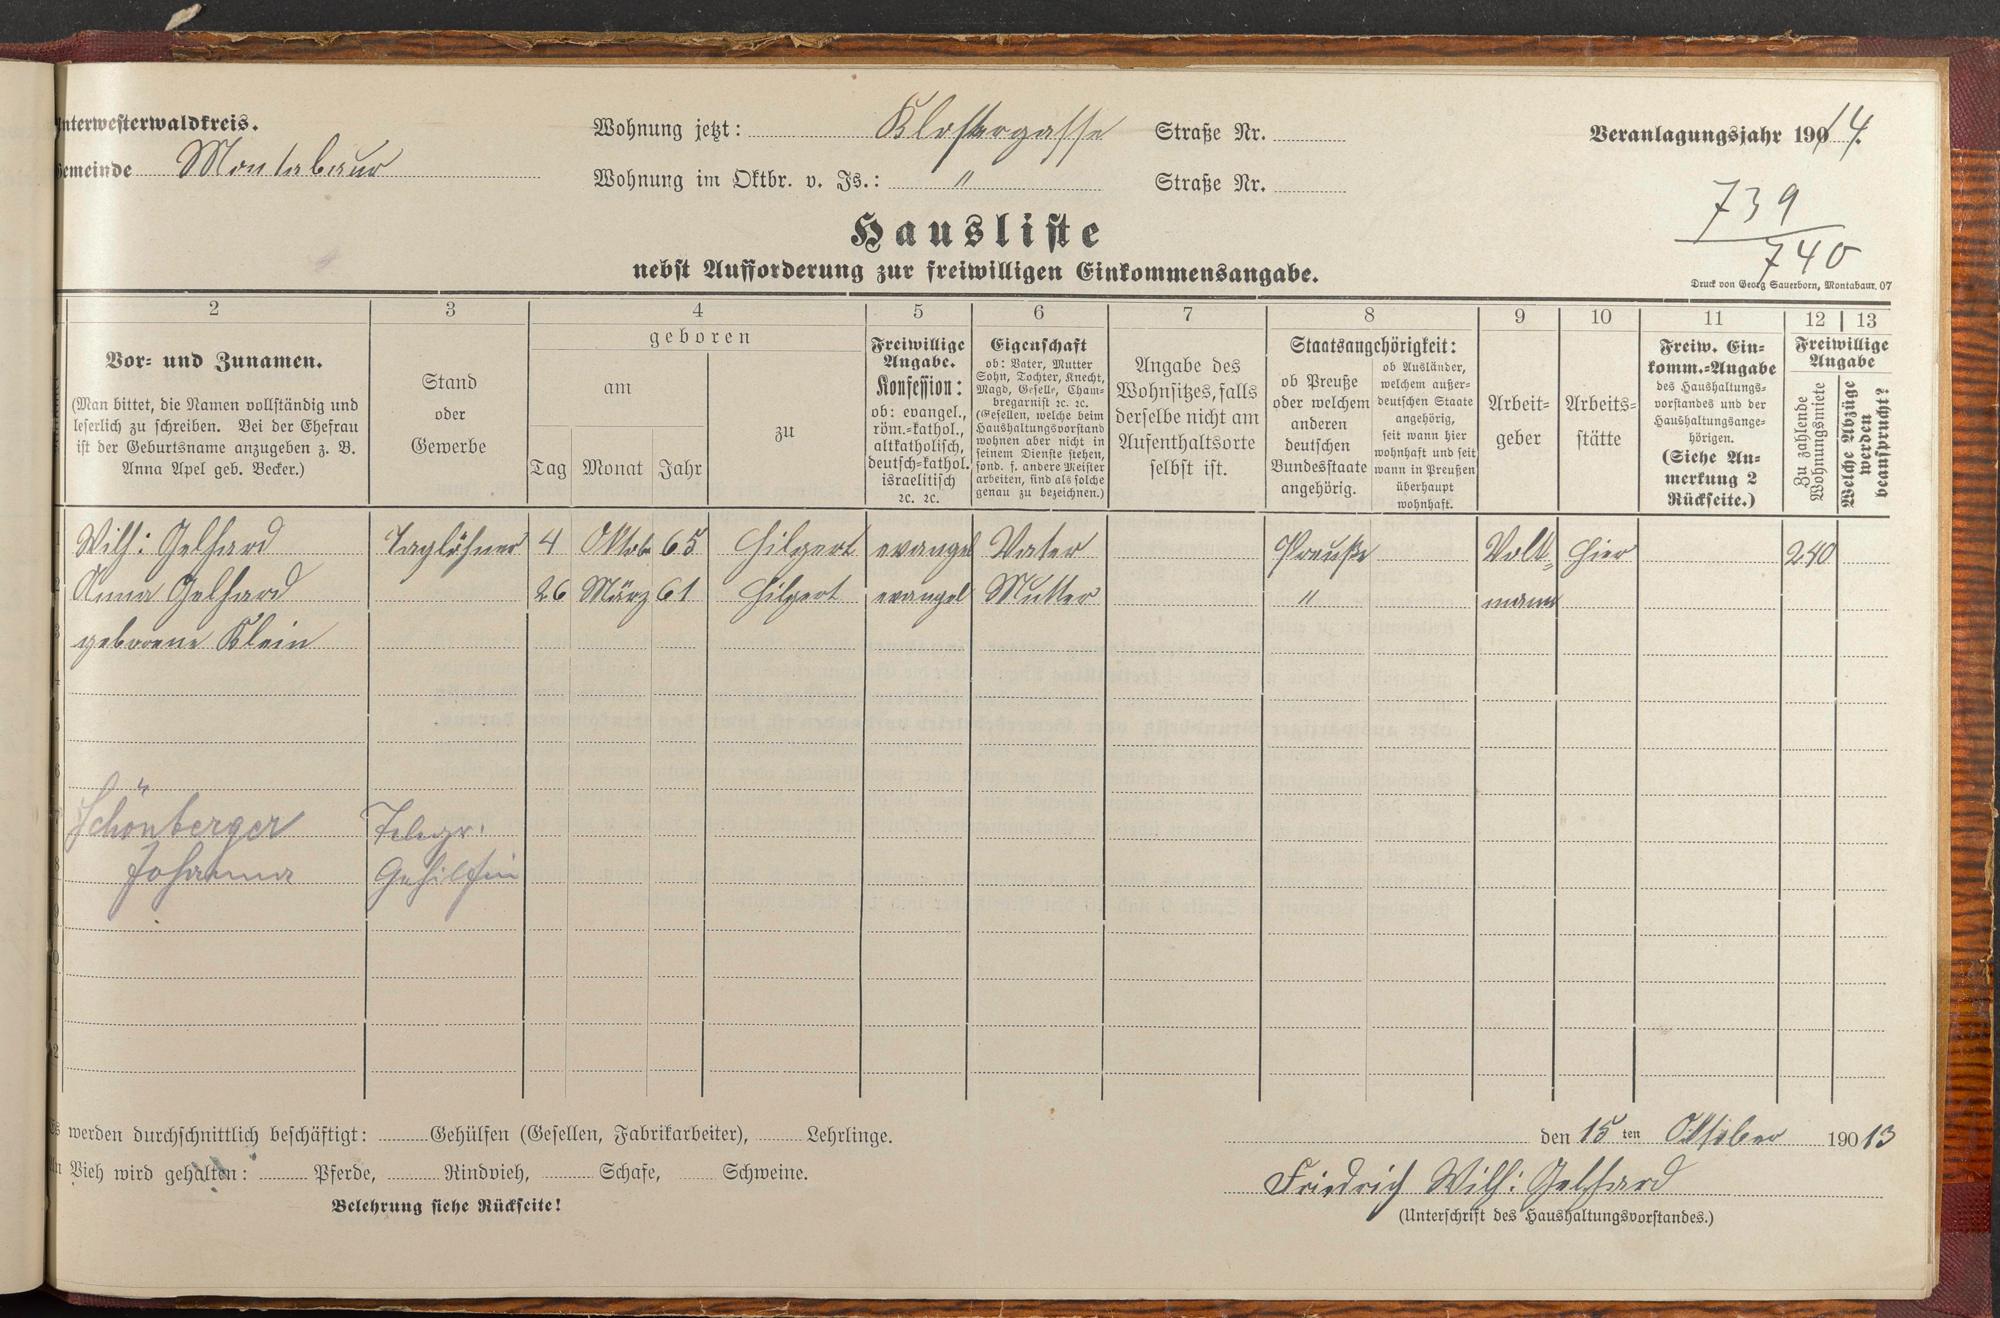 Unterwesterwaldkreis.
Gemeinde Montabaur
Wohnung jetzt: Klostergasse Straße Nr.
Wohnung im Oktbr. v. Js.: " Straße Nr.
Veranlagungsjahr 1914.
739
740
Hausliste
nebst Aufforderung zur freiwilligen Einkommensangabe.
Druck von Georg Sauerborn, Montabaur. 07
2
Vor- und Zunamen.
(Man bittet, die Namen vollständig und
leserlich zu schreiben. Bei der Ehefrau
ist der Geburtsname anzugeben z. B.
Anna Apel geb. Becker.)
3
Stand
oder
Gewerbe
4
geboren
am
Tag Monat Jahr
zu
5
Freiwillige
Angabe.
Konfession:
ob: evangel.,
röm.-kathol.,
altkatholisch,
deutsch-kathol.
israelitisch
ꝛc. ꝛc.
6
Eigenschaft
ob: Vater, Mutter
Sohn, Tochter, Knecht,
Magd, Geselle, Cham-
bregarnist ꝛc. ꝛc.
(Gesellen, welche beim
Haushaltungsvorstand
wohnen aber nicht in
seinem Dienste stehen,
sond. f. andere Meister
arbeiten, sind als solche
genau zu bezeichnen.)
7
Angabe des
Wohnsitzes, falls
derselbe nicht am
Aufenthaltsorte
selbst ist.
8
Staatsangehörigkeit:
ob Preuße
oder welchem
anderen
deutschen
Bundesstaate
angehörig.
ob Ausländer,
welchem außer-
deutschen Staate
angehörig,
seit wann hier
wohnhaft und seit
wann in Preußen
überhaupt
wohnhaft.
9
Arbeit-
geber
10
Arbeits-
stätte
11
Freiw. Ein-
komm.-Angabe
des Haushaltungs-
vorstandes und der
Haushaltungsange-
hörigen.
(Siehe An-
merkung 2
Rückseite.)
12 | 13
Freiwillige
Angabe
Zu zahlende
Wohnungsmiete
Welche Abzüge
werden
beansprucht?
Wilh: Gelhard Taglöhner 4 Oktob 65 Hilgert evangel Vater Preuße Volk= hier 240
Anna Gelhard 26 März 61 Hilgert evangel Mutter " mann
geborene Klein
Schönberger Telegr.
Johanna Gehilfin
Es werden durchschnittlich beschäftigt: Gehülfen (Gesellen, Fabrikarbeiter), Lehrlinge.
An Vieh wird gehalten: Pferde, Rindvieh, Schafe, Schweine.
Belehrung siehe Rückseite!
den 15 ten Oktober 190 13
Friedrich Wilh: Gelhard
(Unterschrift des Haushaltungsvorstandes.)